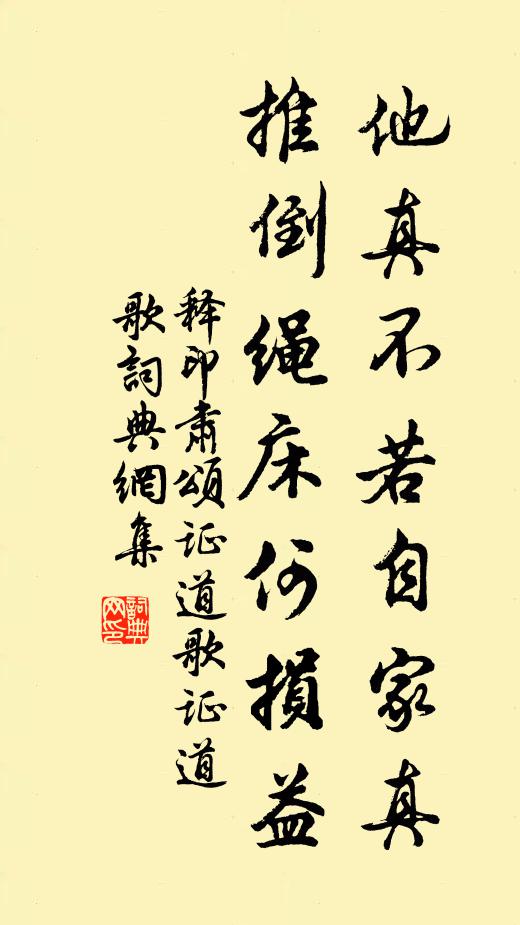 他真不若自家真
推倒绳床何损益
释印肃颂证道歌证道
歌詞典網集
詞典
网印